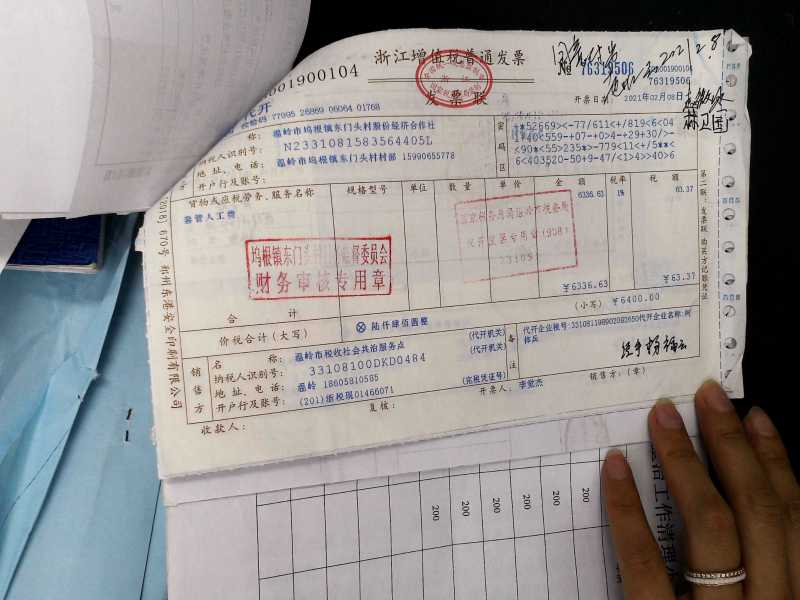 浙江增值税普通发票
001900104
76319506
2021.2.8
001900104
76319506
发票联
开票日期 2021年02月08日
代开
校验码 77095 26869 06064 01768
称: 温岭市坞根镇东门头村股份经济合作社
纳税人识别号: N2331081583564405L
地址、电话: 温岭市坞根镇东门头村村部 15990655778
开户行及账号:
密码区
*52669><-77/611<+/819<6<04
740<559-+07-+0>4-+29+30/>-
<90*<55>235*->779<11+/5**<
6<403520-50+9-47/<1>4>>40>6
林卫国
货物或应税劳务、服务名称 规格型号 单位 数量 单价 金额 税率 税额
6336.63 1% 63.37
坞根镇东门头村 监督委员会
财务审核专用章
合计 ¥6336.63 ¥63.37
价税合计(大写) ⊗陆仟肆佰圆整 (小写) ¥6400.00
销售方
名称: 温岭市税收社会共治服务点 (代开机关)
纳税人识别号: 33108100DKD0484 (代开机关)
地址、电话: 温岭 18605810585
开户行及账号: (201)浙税现01466071 (完税凭证号)
备注
代开企业税号:331081198902092650 代开企业名称:柯
体兵
收款人: 复核: 开票人: 李世杰 销售方:(章)
第二联:发票联 购买方记账凭证
670号 杭州东港安全印刷有限公司
200 200 200 200 200 200